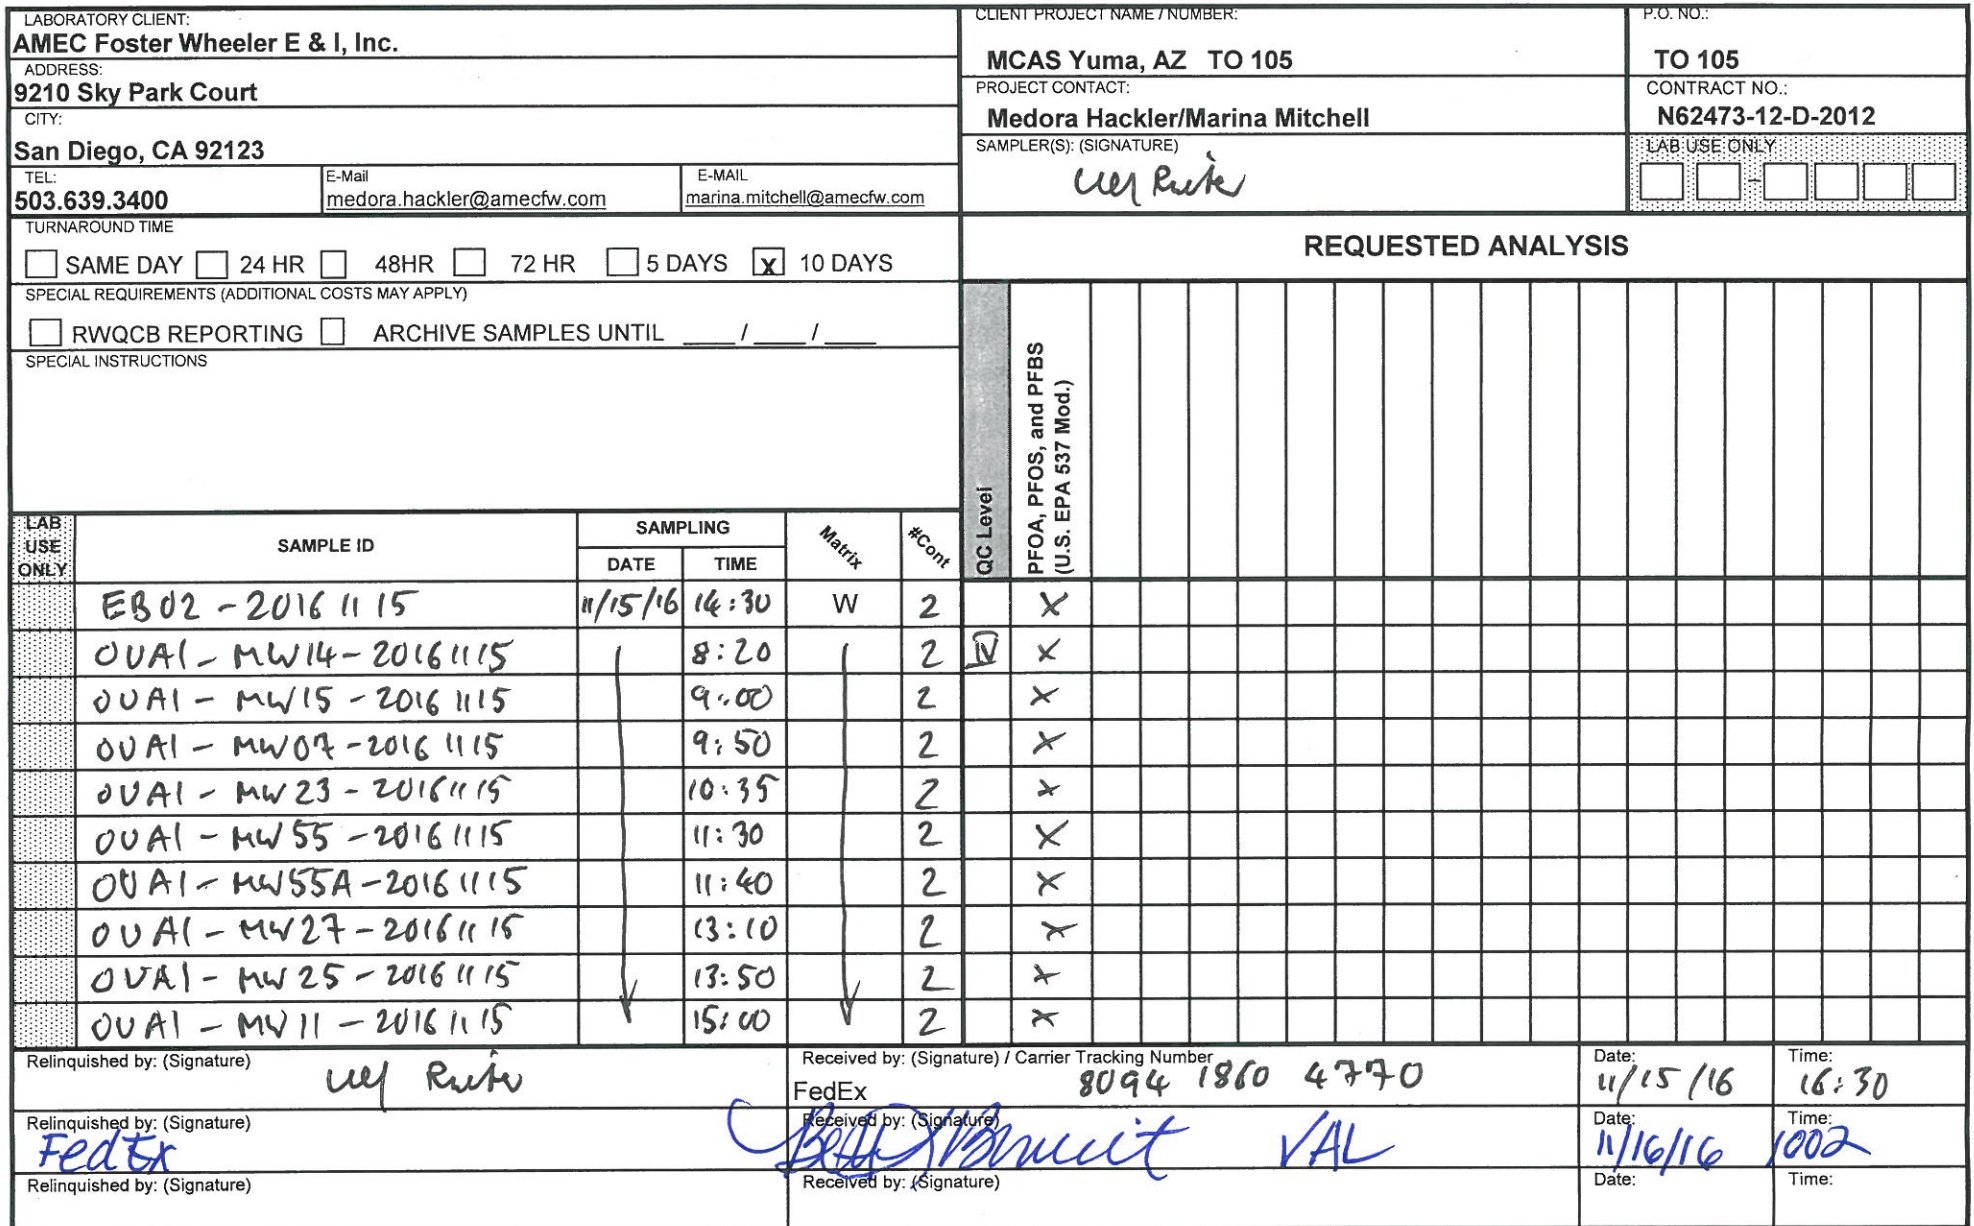 LABORATORY CLIENT:
AMEC Foster Wheeler E & I, Inc.
ADDRESS:
9210 Sky Park Court
CITY:
San Diego, CA 92123
TEL:
503.639.3400
E-Mail
medora.hackler@amecfw.com
E-MAIL
marina.mitchell@amecfw.com
CLIENT PROJECT NAME / NUMBER:
MCAS Yuma, AZ TO 105
PROJECT CONTACT:
Medora Hackler/Marina Mitchell
SAMPLER(S): (SIGNATURE)
P.O. NO.:
TO 105
CONTRACT NO.:
N62473-12-D-2012
LAB USE ONLY
TURNAROUND TIME
SAME DAY 24 HR 48HR 72 HR 5 DAYS X 10 DAYS
SPECIAL REQUIREMENTS (ADDITIONAL COSTS MAY APPLY)
RWQCB REPORTING ARCHIVE SAMPLES UNTIL ____/____/____
SPECIAL INSTRUCTIONS
REQUESTED ANALYSIS
QC Level
PFOA, PFOS, and PFBS
(U.S. EPA 537 Mod.)
LAB USE ONLY
SAMPLE ID
SAMPLING
DATE TIME
Matrix
#Cont
EB02 - 20161115 11/15/16 14:30 W 2 X
OUA1 - MW14 - 20161115 8:20 2 IV X
OUA1 - MW15 - 20161115 9:00 2 X
OUA1 - MW07 - 20161115 9:50 2 X
OUA1 - MW23 - 20161115 10:35 2 X
OUA1 - MW55 - 20161115 11:30 2 X
OUA1 - MW55A - 20161115 11:40 2 X
OUA1 - MW27 - 20161115 13:10 2 X
OUA1 - MW25 - 20161115 13:50 2 X
OUA1 - MW11 - 20161115 15:00 2 X
Relinquished by: (Signature)
Received by: (Signature) / Carrier Tracking Number
FedEx 8094 1860 4770
Date: 11/15/16
Time: 16:30
Relinquished by: (Signature)
FedEx
Received by: (Signature)
VAL
Date: 11/16/16
Time: 1002
Relinquished by: (Signature)
Received by: (Signature)
Date:
Time: